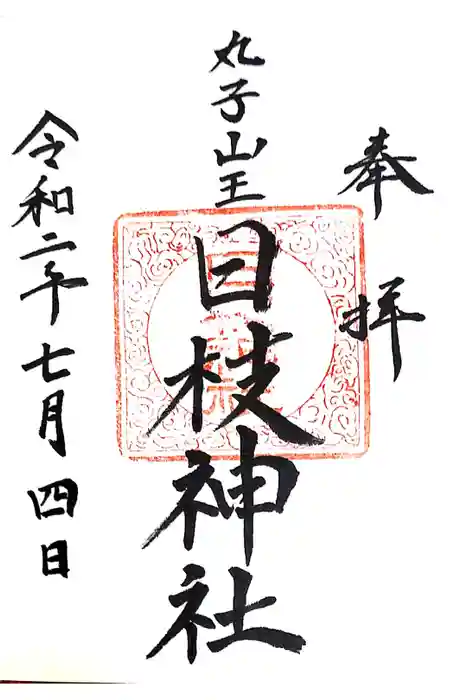 奉拝
丸子山王
日枝神社
令和二年七月四日